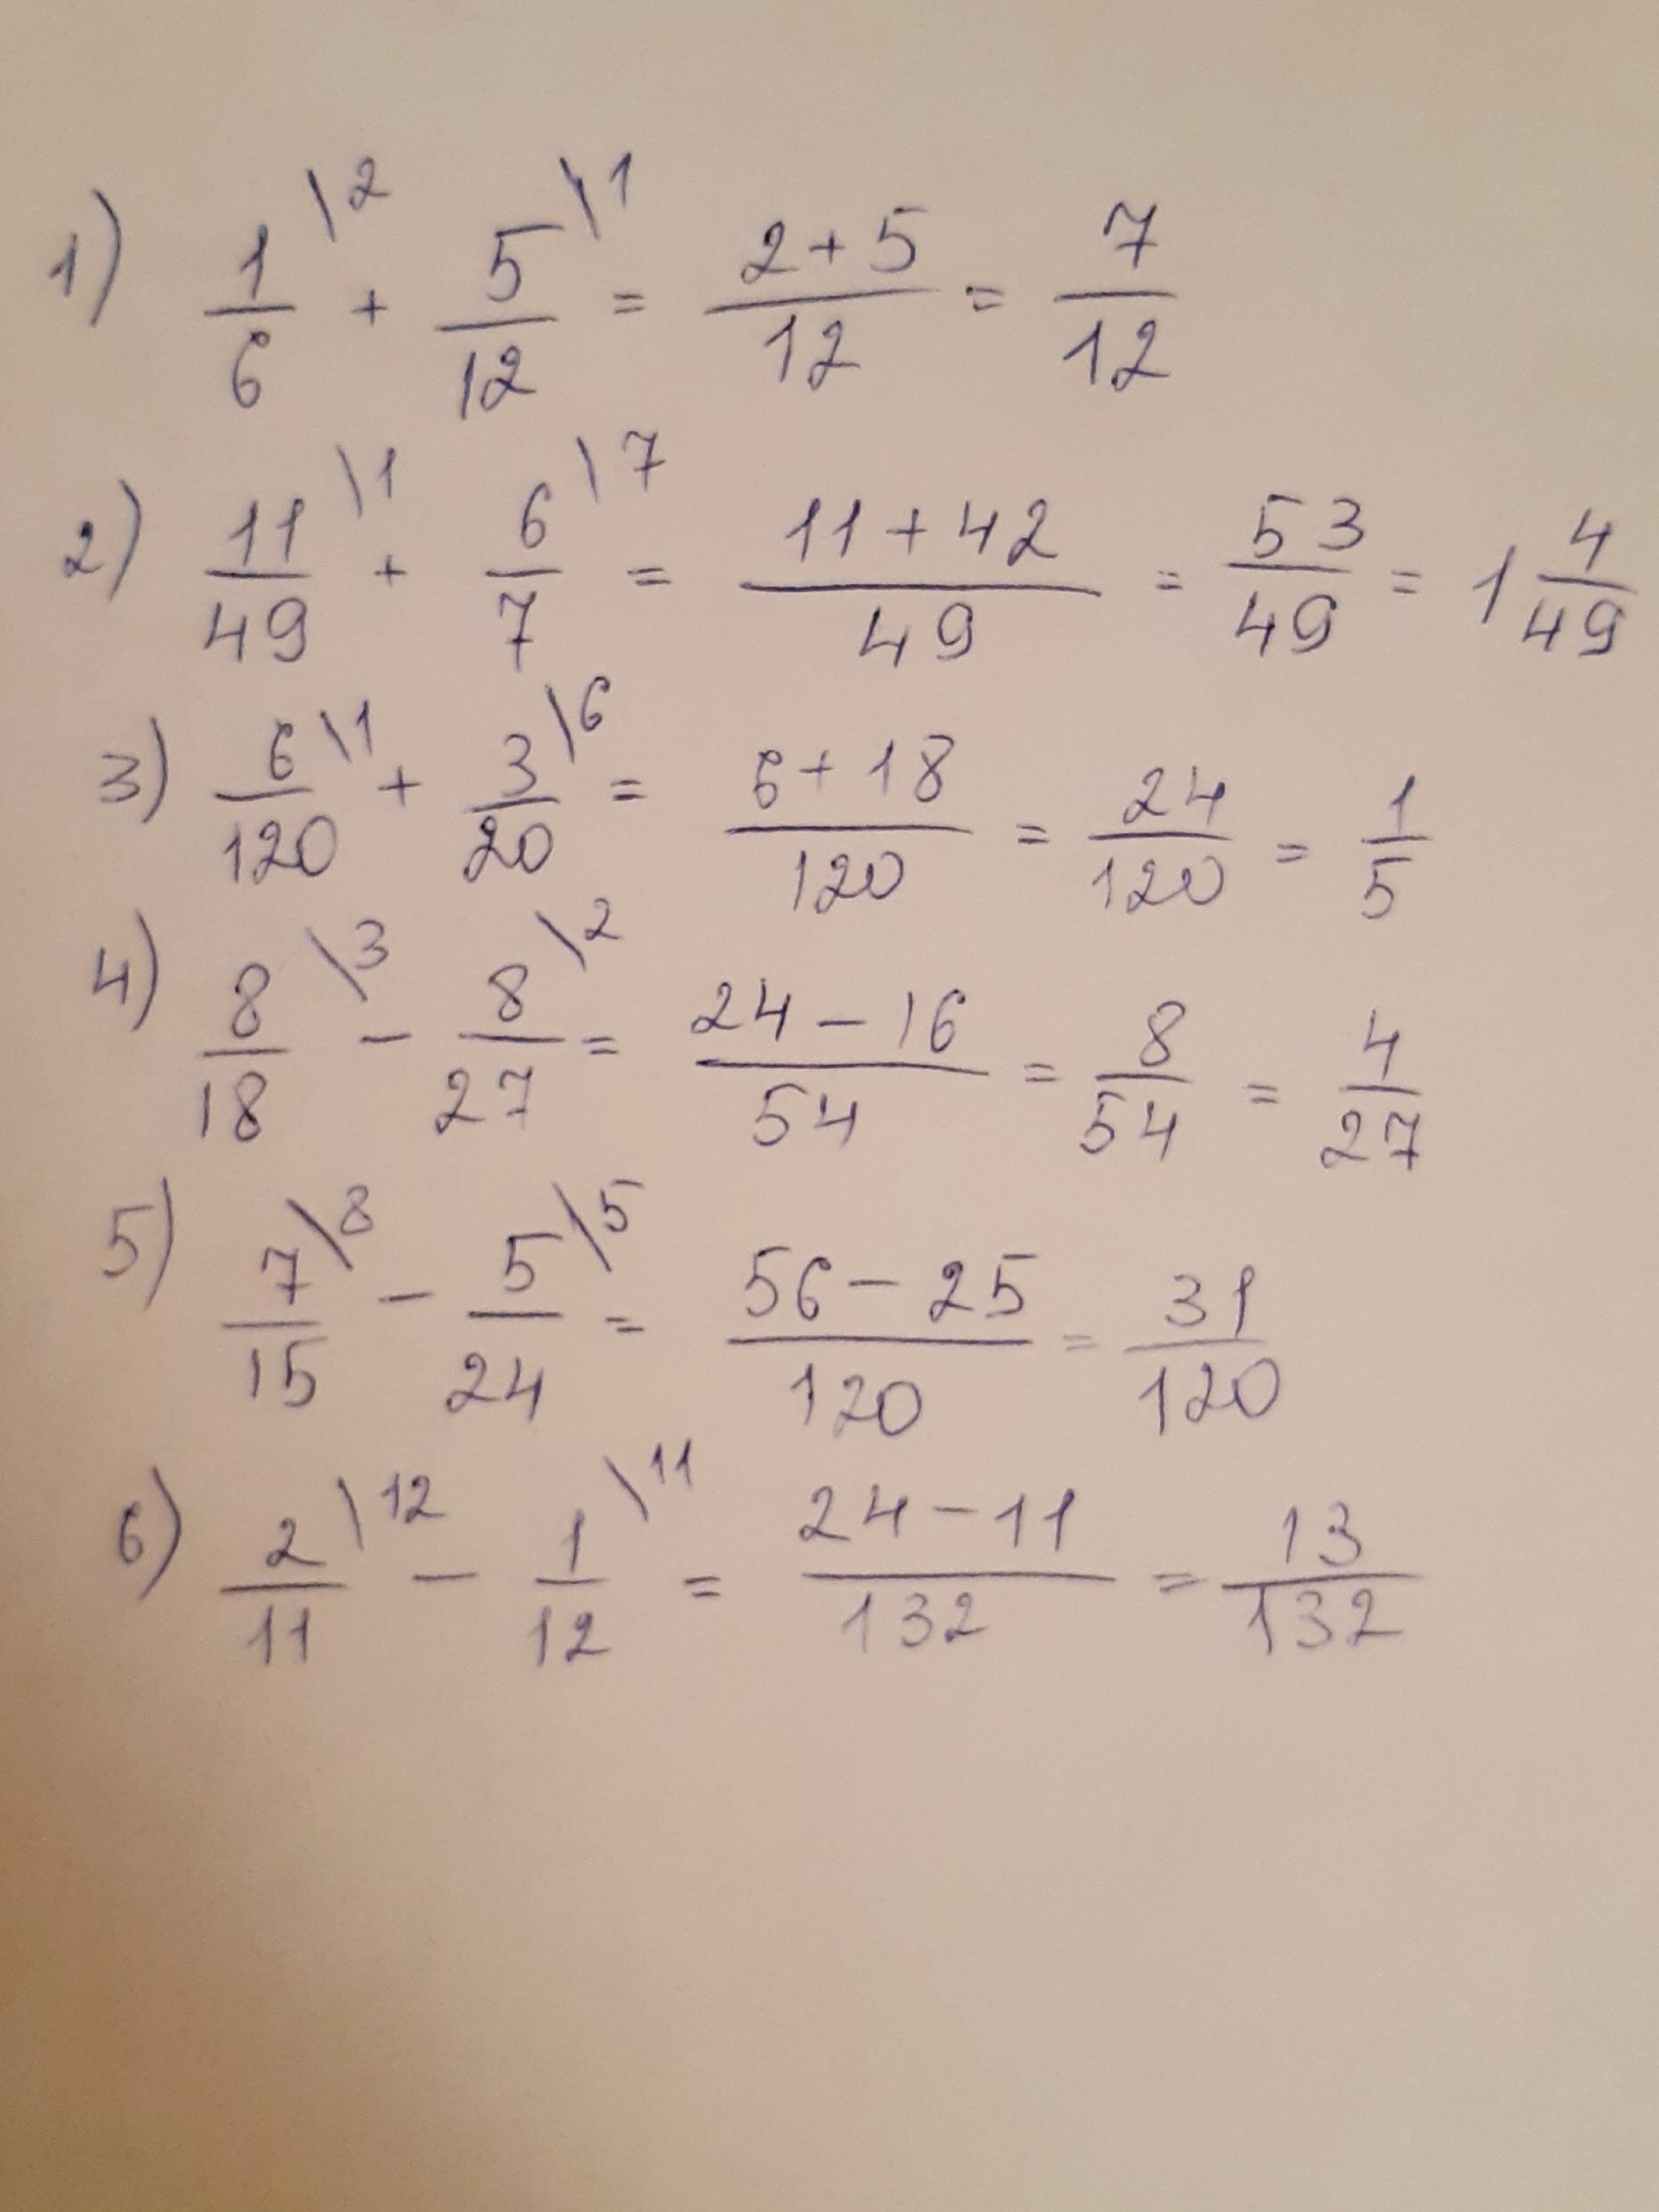 1) 1/6 \2 + 5/12 \1 = (2+5)/12 = 7/12
2) 11/49 \1 + 6/7 \7 = (11+42)/49 = 53/49 = 1 4/49
3) 6/120 \1 + 3/20 \6 = (6+18)/120 = 24/120 = 1/5
4) 8/18 \3 - 8/27 \2 = (24-16)/54 = 8/54 = 4/27
5) 7/15 \8 - 5/24 \5 = (56-25)/120 = 31/120
6) 2/11 \12 - 1/12 \11 = (24-11)/132 = 13/132